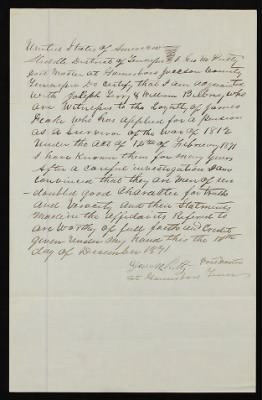 United States of America
Middle District of Tennessee I Geo W
Post Master at Gainsboro Jackson County
Tennessee Do certify that I am acquainted
with Joseph & William Billings who
are Witnesses to the Loyalty of James
who has applied for a pension
as a survivor of the war of 1812
Under the Act of 14th of February 1871
I have known them for many years
After a careful investigation I am
convinced that the are men of un
doubted good Character for truth
and Veracity and their Statments
made in the affidavits Refered to
are worthy of full faith and Credit
given under my hand this the
day of December 1871
Post Master
at Gainsboro Tenn